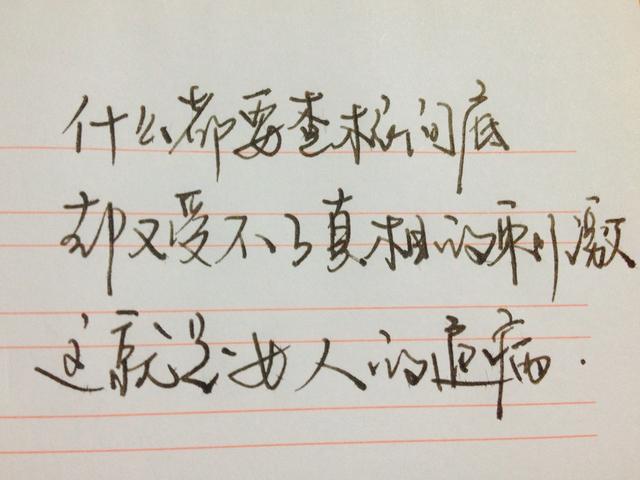 什么都要查根问底
却又受不了真相的刺激
这就是女人的通病.